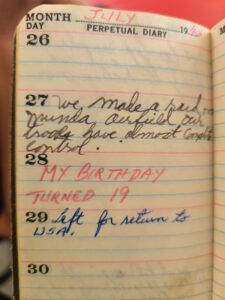 MONTH JULY
DAY PERPETUAL DIARY 19
26
27 we make a raid on
munda airfield our
troops have almost complete
control.
28
MY BIRTHDAY
TURNED 19
29 Left for return to
USA.
30